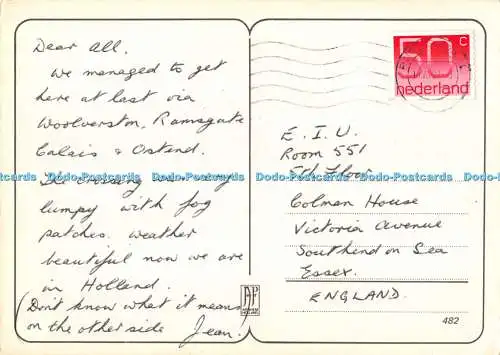 Dear All.
We managed to get
here at last via
Woolverston, Ramsgate
Calais & Ostend.
The crossing was very
lumpy with fog
patches. Weather
beautiful now we are
in Holland.
(Don't know what it means
on the other side Jean.)
50 c
nederland
E.I.U.
Room 551
5th Floor
Colman House
Victoria Avenue
Southend on Sea
Essex.
ENGLAND.
482
Dodo-Postcards Dodo-Postcards Dodo-Postcards Dodo-Postcards Dodo-Postcards